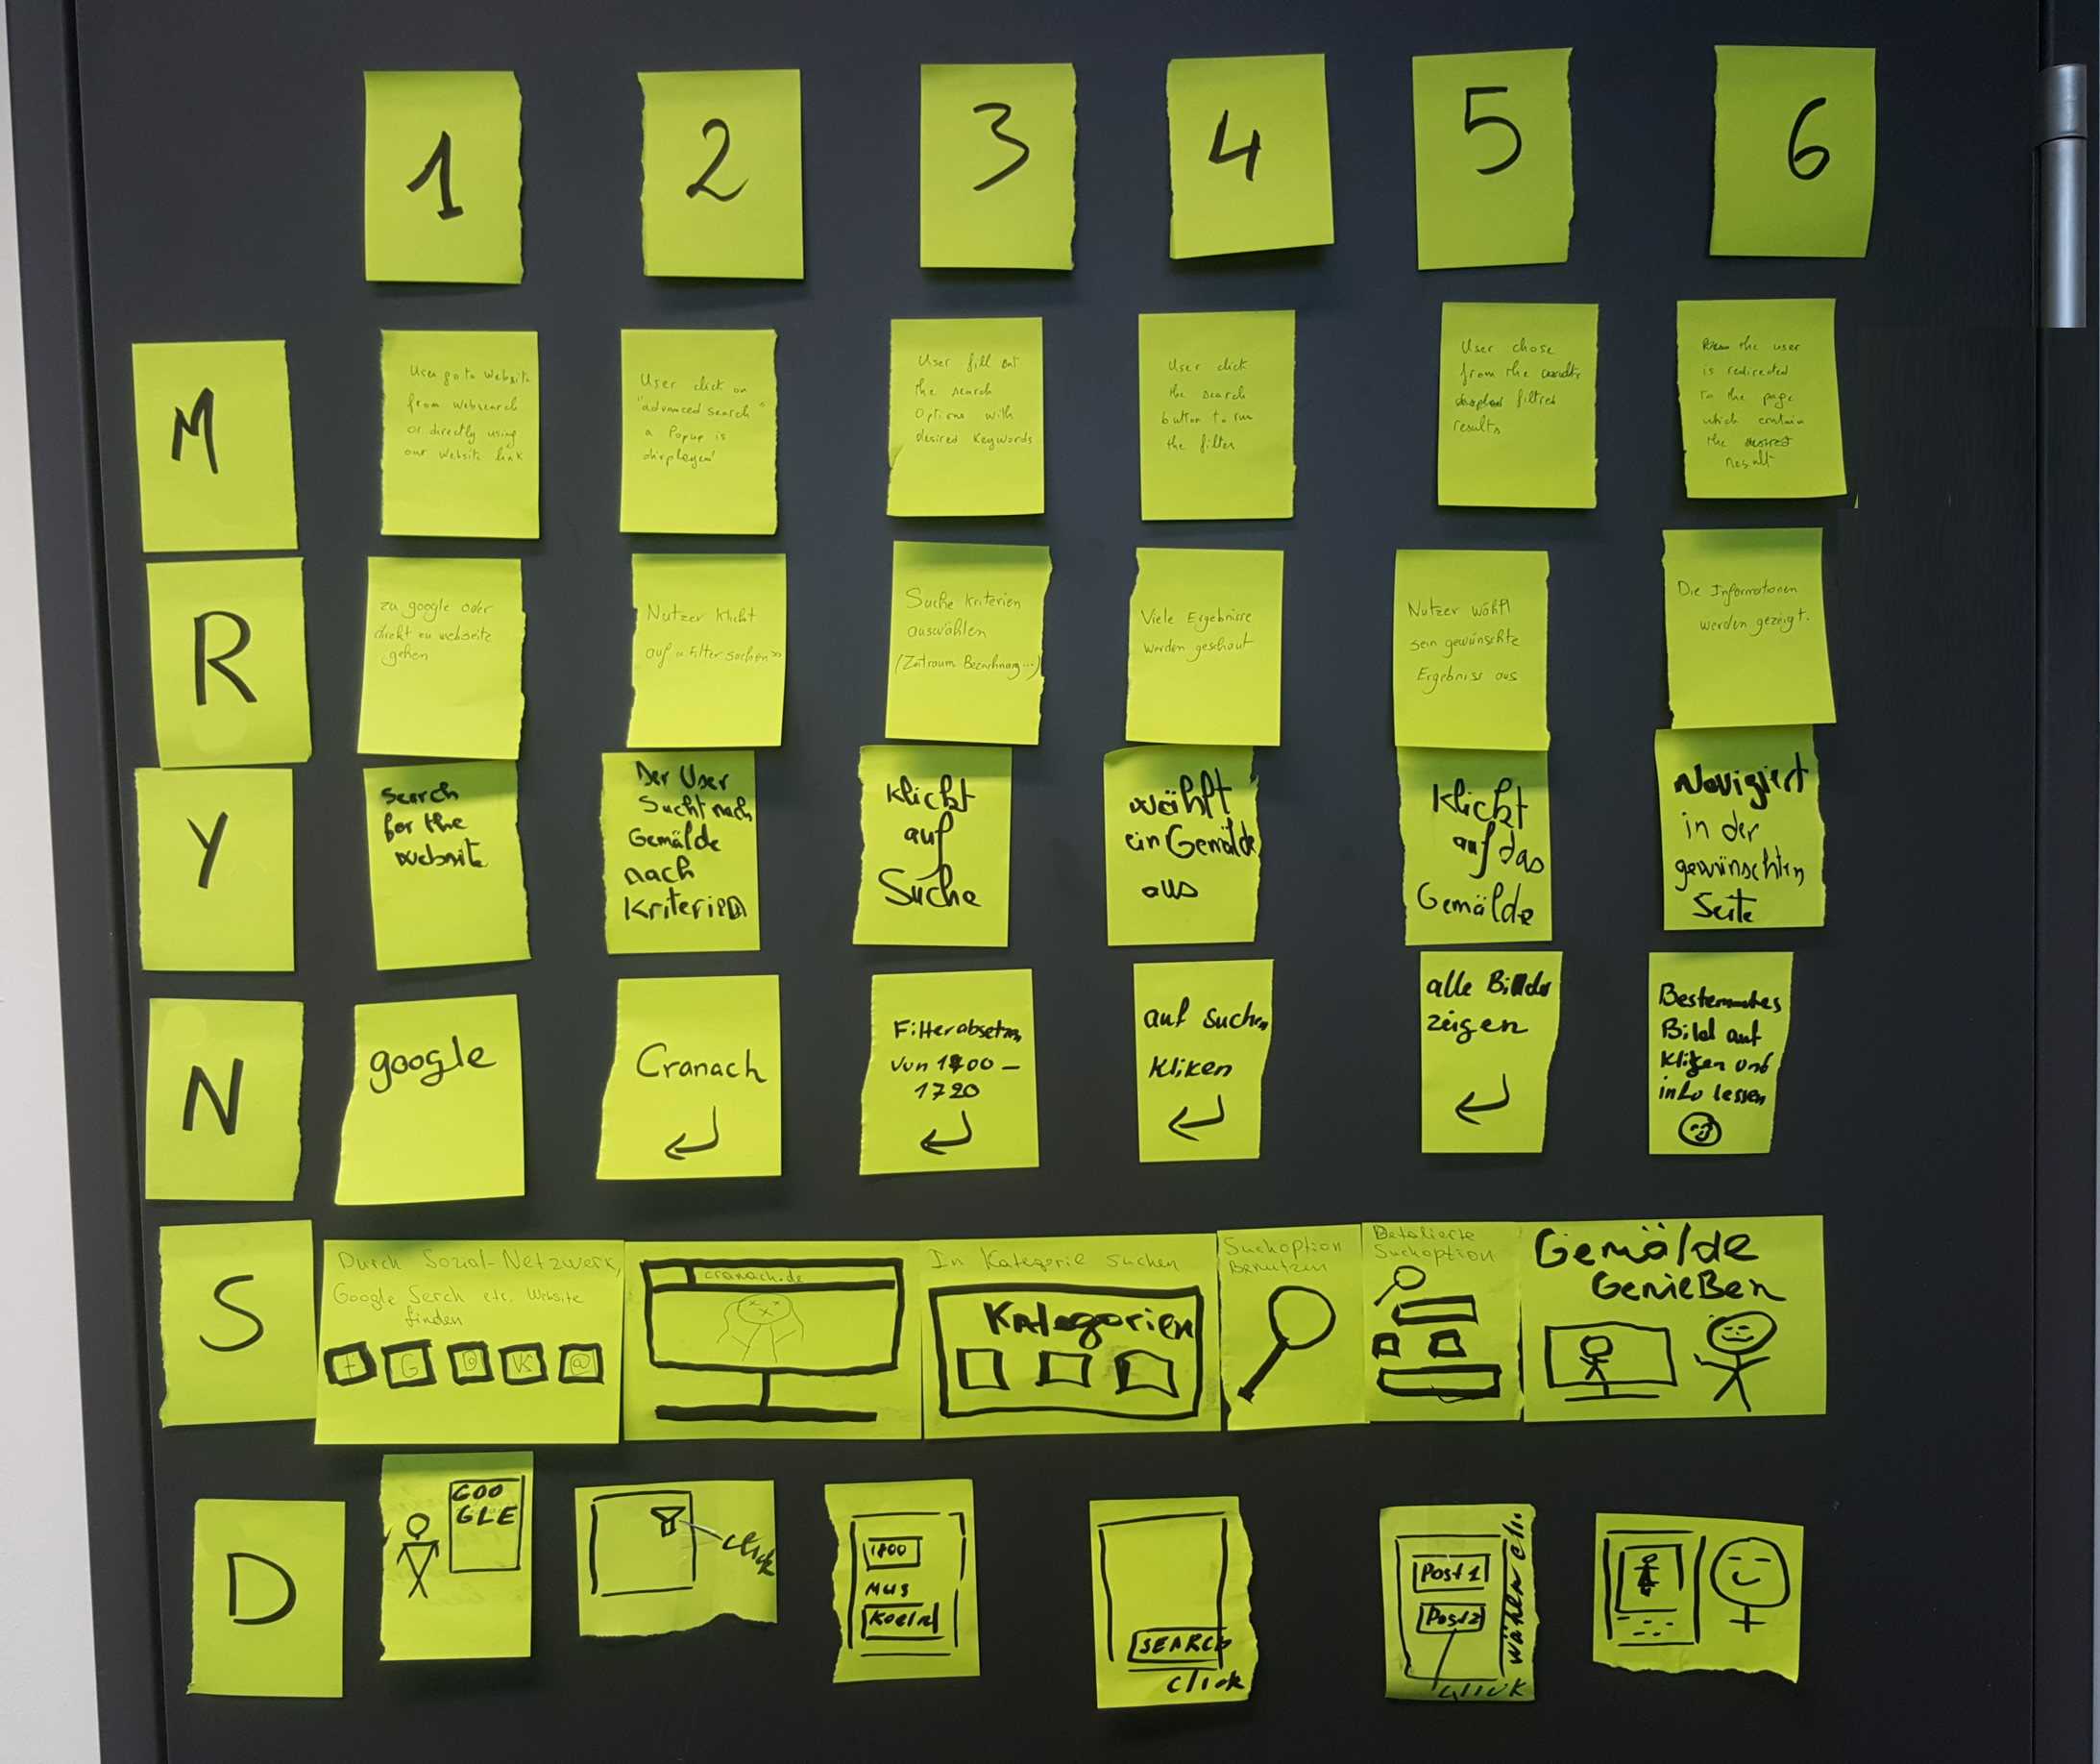 1
2
3
4
5
6
M
User go to Website
from websearch
or directly using
our website link
User click on
"advanced search"
a Popup is
displayed
User fill out
the search
Options with
desired Keywords
User click
the search
button to run
the filter
User chose
from the
filtred
results
the user
is redirected
to the page
which contain
the
result
R
zu google oder
direkt zu webseite
gehen
Nutzer klickt
auf «Filter suchen»
Suche Kriterien
auswählen
(Zeitraum
Viele Ergebnisse
werden geschaut
Nutzer wählt
sein gewünschte
Ergebniss aus
Die Informationen
werden gezeigt.
Y
Search
for the
website
Der User
Sucht nach
Gemälde
nach
Kriterien
Klickt
auf
Suche
wählt
ein Gemälde
aus
Klickt
auf das
Gemälde
Navigiert
in der
gewünschten
Seite
N
google
Cranach
Filter absetzen
Von
1720
auf suchen
kliken
alle Bilder
zeigen
Bild auf
info lessen
S
Durch Sozial-Netzwerk,
Google Serch etc. Website
finden
f G K @
cranach.de
In Kategorie suchen
Kategorien
Suchoption
Benutzen
Detalierte
Suchoption
Gemälde
Genießen
D
GOO
GLE
click
1400
MUS
Koeln
SEARCH
click
Post 1
Post 2
click
wählen